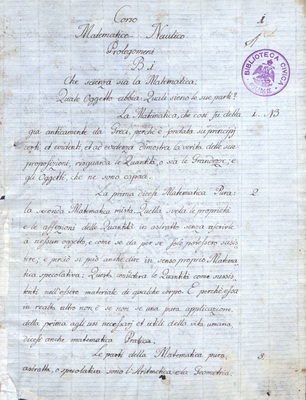 Corso 1
Matematico Nautico
Prolegomeni
Che scienza sia la Matematica:
Quale Oggetto abbia: Quali sieno le sue parti?
La Matematica, che così fu detta 1. NB
già anticamente da Greci, perchè è fondata su principj
certi, et evidenti, et ad evidenza dimostra la verità delle sue
proposizioni, risguarda le Quantità, o sia le Grandezze, e
gli Oggetti, che ne sono capaci.
La prima dicesi Matematica Pura 2
la seconda Matematica mista. Quella svela le proprietà
e le affezioni delle Quantità in astratto senza aderire
a nessun oggetto, e come se da per se sole potessero sussis
tere, e perciò si può anche dire in senso proprio Matema
tica speculativa: Questa considera le Quantità come sussis
tenti nell'essere materiale di qualche corpo. E perchè essa
in realtà altro non è se non se una pura applicazione
della prima agli usi necessarj et utili della vita umana,
dicesi anche matematica Pratica.
Le parti della Matematica pura, 3
astratta, o speculativa sono l'Aritmetica e la Geometria.
BIBLIOTECA CIVICA